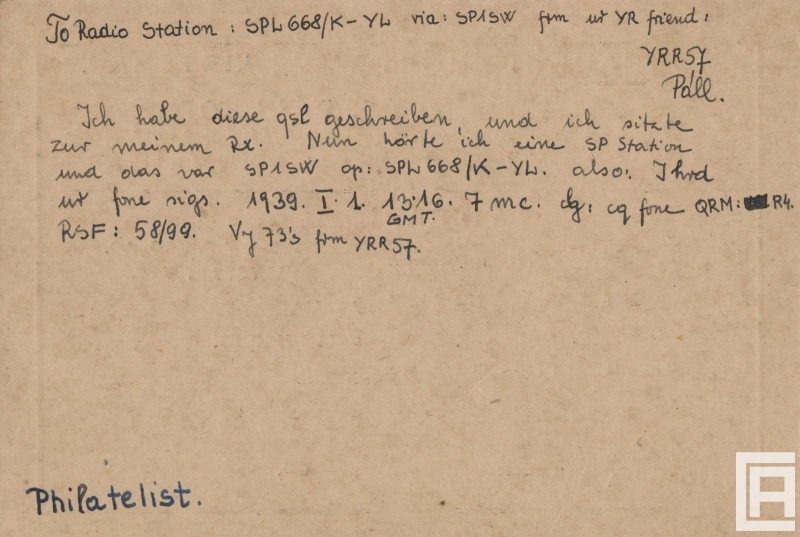 To Radio Station : SPL 668/K-YL via: SP1SW frm ur YR friend:
YRR57
Páll.
Ich habe diese qsl geschreiben, und ich sitzte
zur meinem Rx. Nun hörte ich eine SP Station
und das var SP1SW op: SPL 668/K-YL. also: I hrd
ur fone sigs. 1939. I. 1. 13.16. 7 mc. cq fone QRM: R4.
GMT.
RSF: 58/99. Vy 73's frm YRR57.
Philatelist.